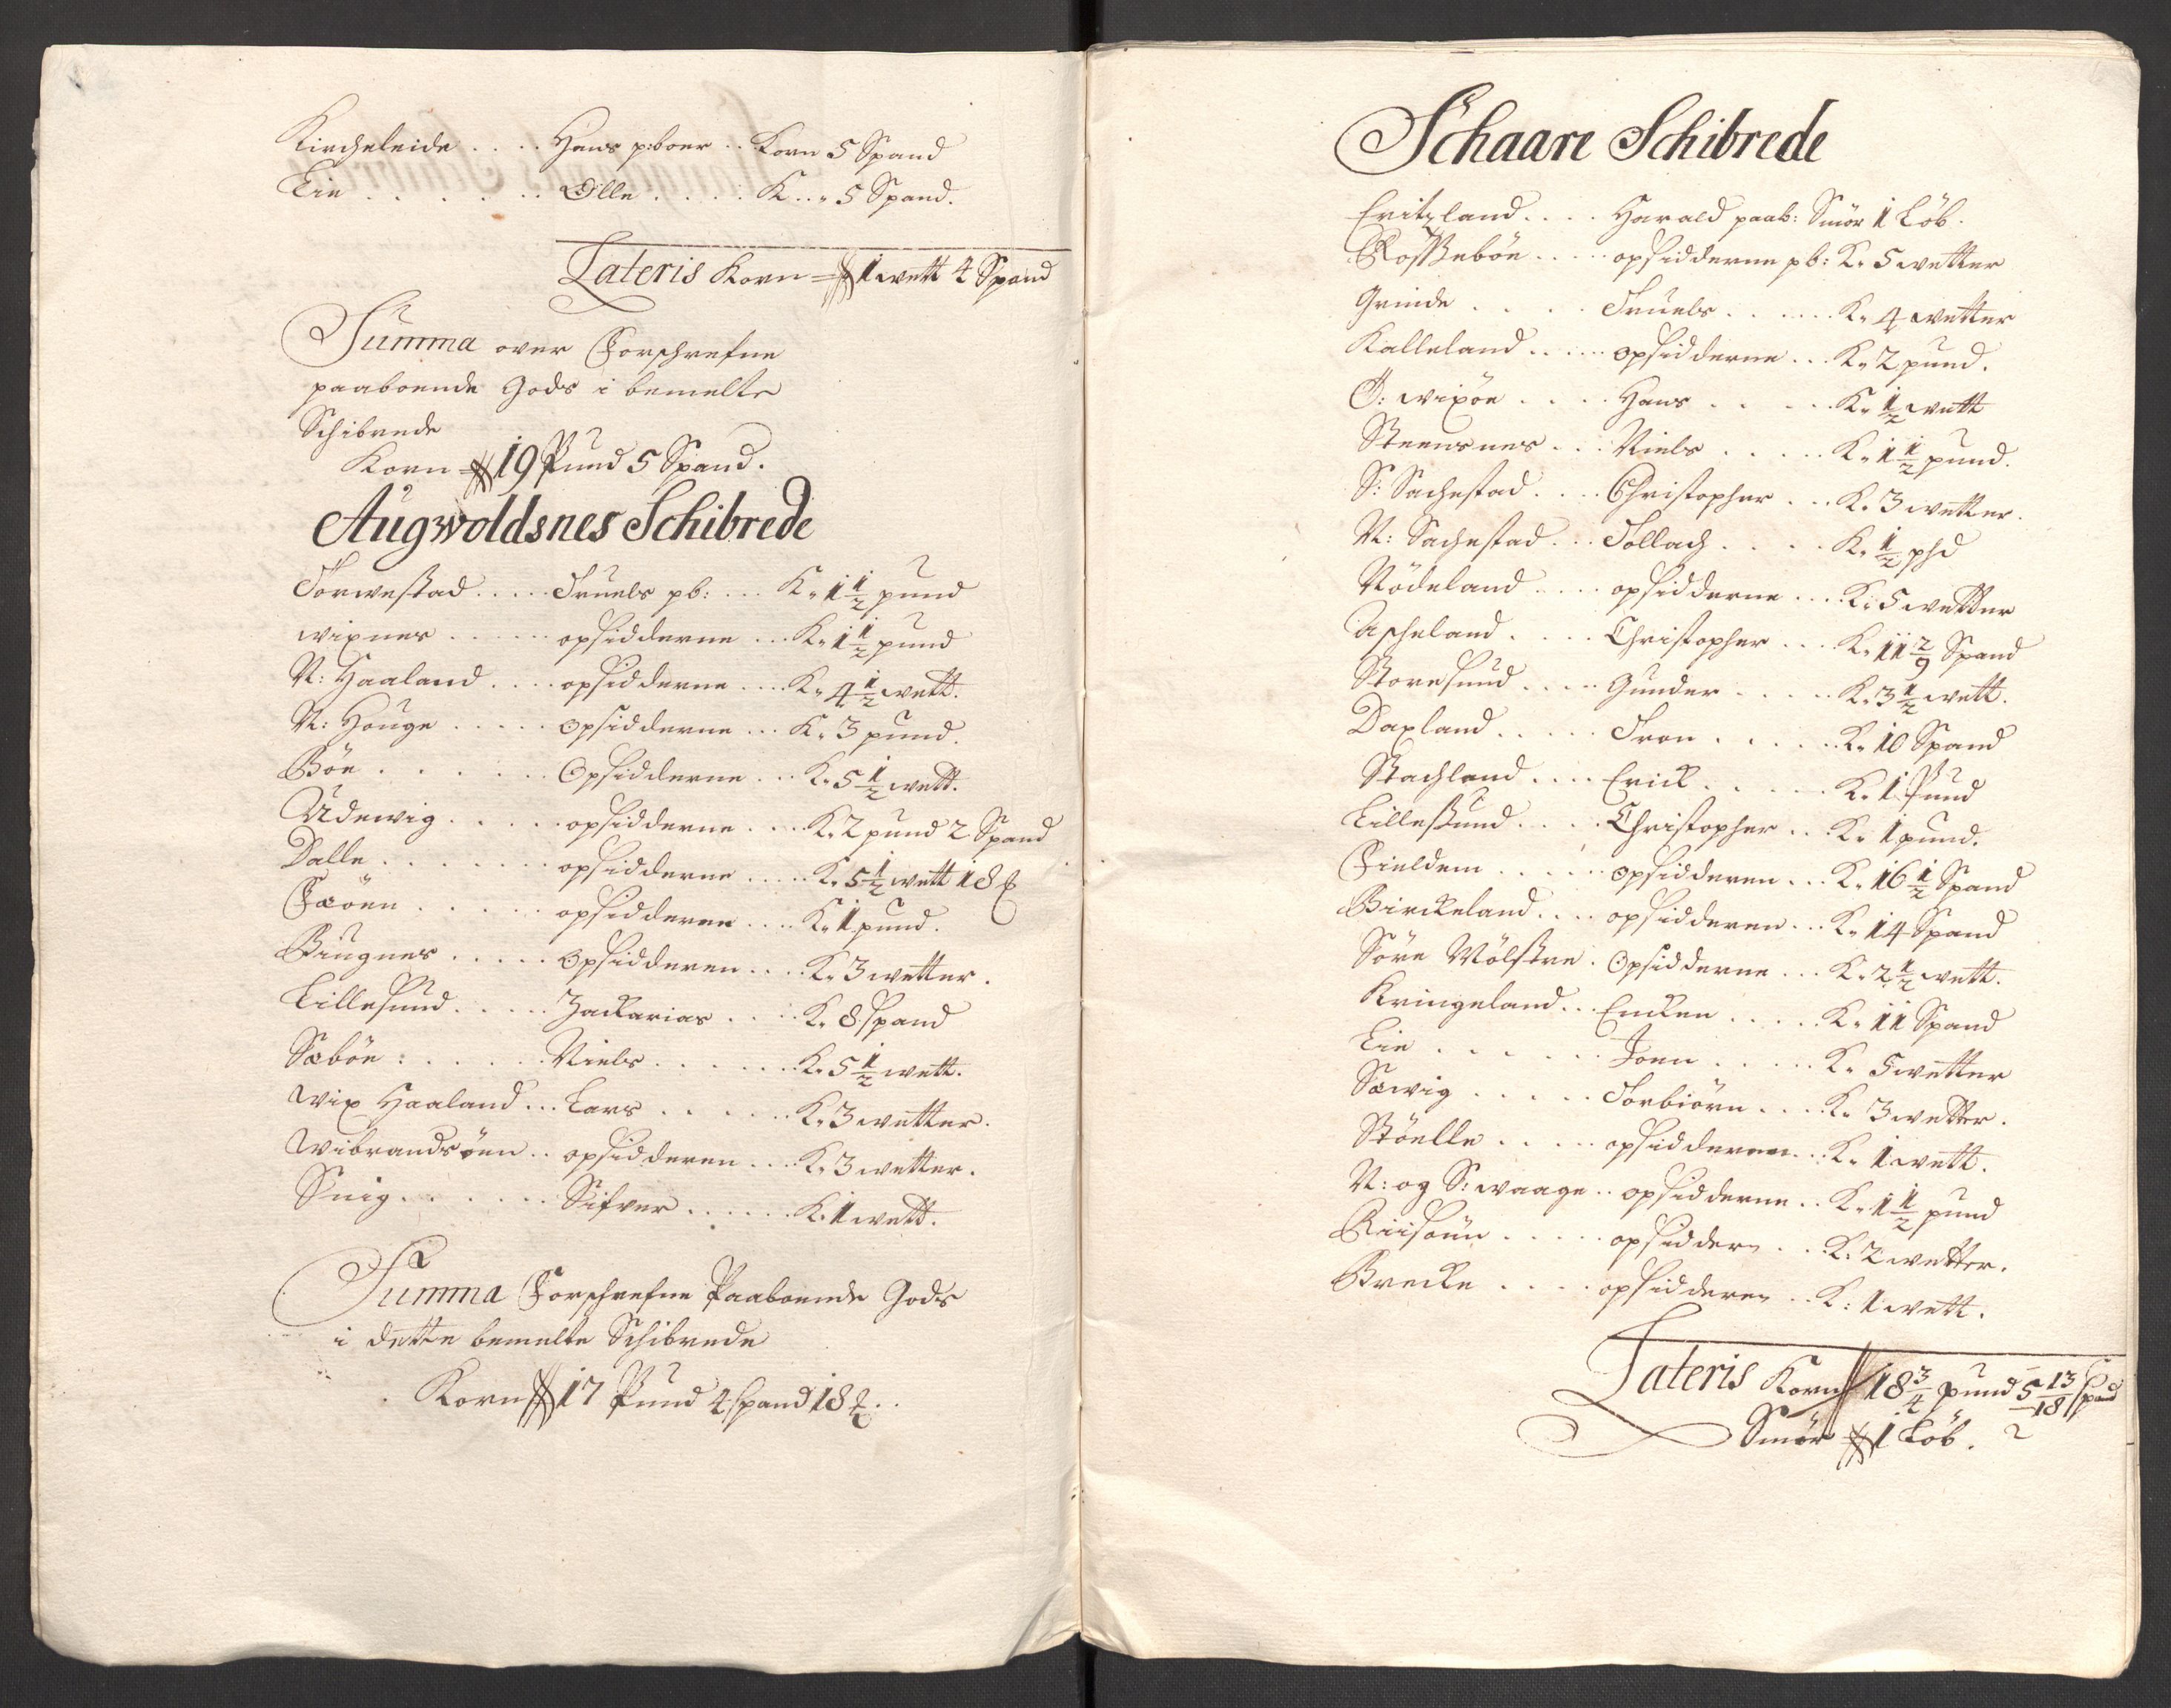 Kircheleide . . . . Hans p:boer . . Korn 5 Spand
Lie . . . . . . Olle . . . . K . . „ 5 Spand.
Lateris Korn 1 wett 4 Spand
Summa over Forschrefne
paaboende Gods i bemelte
Schibrede
Korn 19 Pund 5 Spand.
Augwoldsnes Schibrede
Torwestad . . . . . Truels pb: . . . K„ 1 1/2 pund
wixnes . . . . . . opsidderne . . . K„ 1 1/2 pund
N: Haaland . . . . opsidderne . . . . K„ 4 1/2 wett.
N: Houge . . . . . opsidderne . . . K„ 3 pund.
Böe . . . . . . Opsidderne . . . K„ 5 1/2 wett.
Udewig . . . . . opsidderne . . . . K„ 2 pund 2 Spand
Dalle . . . . . . . opsidderne . . . . . K„ 5 1/2 wett 18 ℔
Fæöen . . . . . opsidderne . . . . K„ 1 pund.
Biugnes . . . . . Opsidderen . . . . K„ 3 wetter.
Lillesund . . . . . Zackarias . . . . K„ 8 spand
Sæböe : . . . . . Niels . . . . . . . K„ 5 1/2 wett.
wix Haaland . . . Lars . . . . . . K„ 3 wetter.
wibrandsöen . . opsidderen . . . . K„ 3 wetter.
Snig . . . . . . Sifver . . . . . . K. 1 wett.
Summa Forschrefne Paaboende Gods
i dette bemelte Schibrede
Korn 17 Pund 4 spand 18 ℔ . .
Schaare Schibrede
Eritzland . . . . Harald paab: Smör 1 Löb.
Rossseböe . . . . . opsidderne pb: K„ 5 wetter
Grinde . . . . Truels . . . . . . K„ 4 wetter
Kalleland . . . . . opsidderne . . . K„ 2 pund.
Ö: wixöe . . . . Hans . . . . . K„ 1/2 wett
Steensnes . . . Niels . . . . . K„ 1 1/2 pund.
S: Sachestad . . . . Christopher . . . K„ 3 wetter.
N: Sachestad . . . Tollach . . . . K„ 1/2 phd
Nödeland . . . . opsidderne . . . . K„ 5 wetter
Ascheland . . . . Christopher . . . K„ 11 2/9 Spand
Storesund . . . . Gunder . . . . . K„ 3 1/2 wett.
Daxland . . . . . Tron . . . . . . K„ 10 Spand
Stachland . . . . Erick . . . . . K„ 1 Pund
Lillesund . . . . Christopher . . K„ 1 pund.
Fieldem . . . . . opsidderen . . . K„ 16 1/2 Spand
Birckeland . . . . opsidderen . . . K„ 14 Spand
Söre Mölstre . Opsidderne . . . K„ 2 1/2 wett.
Kringeland . . Encken . . . . . K„ 11 Spand
Lie . . . . . . Joen . . . . . K„ 5 wetter
Sæwig . . . . . Torbiörn . . . . K„ 3 wetter.
Stöelle . . . . . opsidderne . . . K„ 1 wett.
N: og S: waage . . opsidderne . . K„ 1 1/2 pund
Riisöen . . . . . opsiddern . . K: 2 wetter.
Brecke . . . . opsidderen . . K: 1 wett.
Lateris Korn 18 3/4 pund 5 13/18 spand
Smör 1 Löb.